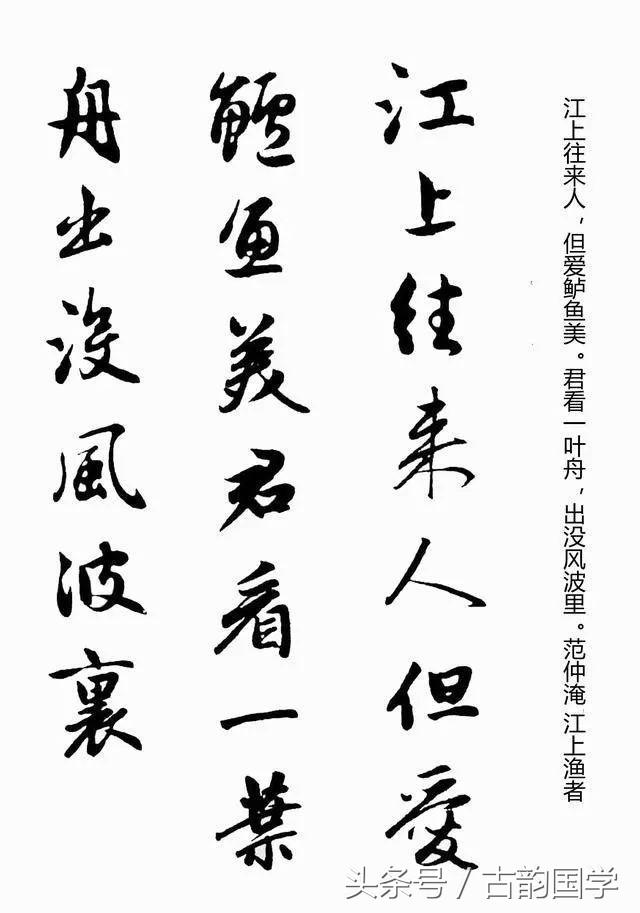 江上往来人，但爱鲈鱼美。君看一叶舟，出没风波里。范仲淹 江上渔者
江上往来人但愛
鱸魚美君看一葉
舟出沒風波裏
头条号／古韵国学